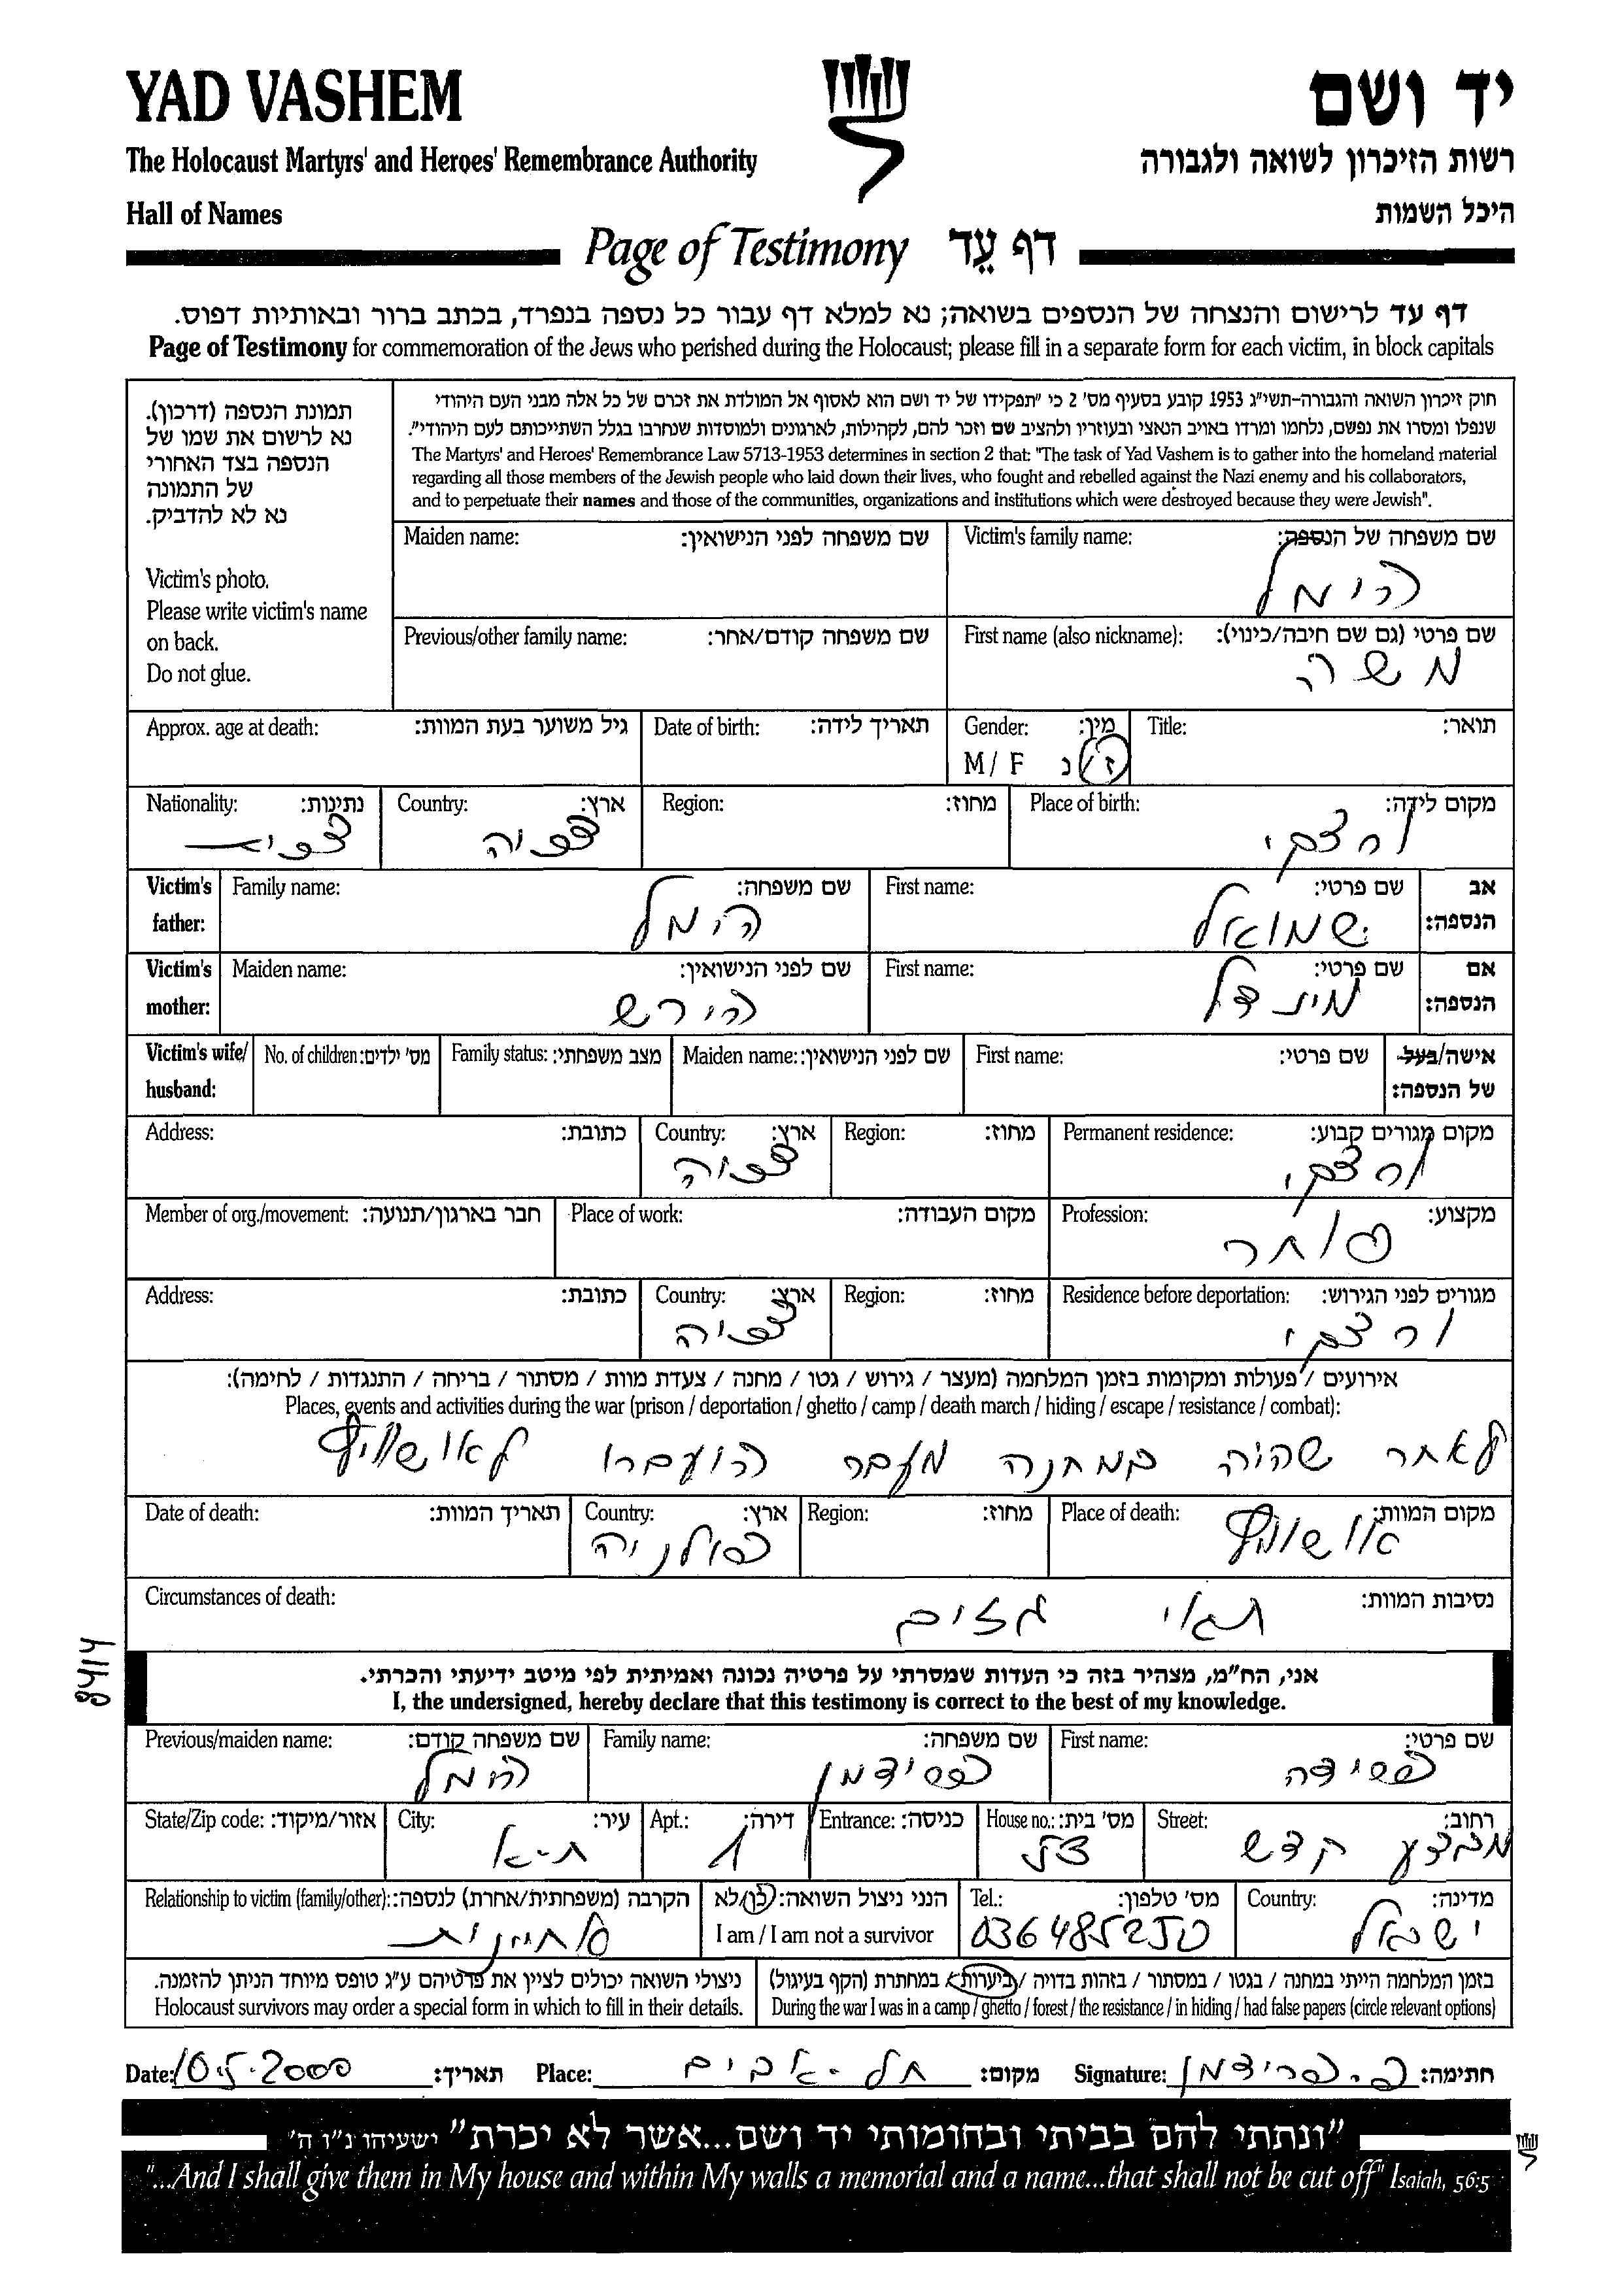 YAD VASHEM
יד ושם
The Holocaust Martyrs' and Heroes' Remembrance Authority
רשות הזיכרון לשואה ולגבורה
Hall of Names
היכל השמות
Page of Testimony דף עֵד
דף עד לרישום והנצחה של הנספים בשואה; נא למלא דף עבור כל נספה בנפרד, בכתב ברור ובאותיות דפוס.
Page of Testimony for commemoration of the Jews who perished during the Holocaust; please fill in a separate form for each victim, in block capitals
תמונת הנספה (דרכון).
נא לרשום את שמו של
הנספה בצד האחורי
של התמונה
נא לא להדביק.
Victim's photo.
Please write victim's name
on back.
Do not glue.
חוק זיכרון השואה והגבורה-תשי"ג 1953 קובע בסעיף מס' 2 כי "תפקידו של יד ושם הוא לאסוף אל המולדת את זכרם של כל אלה מבני העם היהודי
שנפלו ומסרו את נפשם, נלחמו ומרדו באויב הנאצי ובעוזריו ולהציב שם וזכר להם, לקהילות, לארגונים ולמוסדות שנחרבו בגלל השתייכותם לעם היהודי".
The Martyrs' and Heroes' Remembrance Law 5713-1953 determines in section 2 that: "The task of Yad Vashem is to gather into the homeland material
regarding all those members of the Jewish people who laid down their lives, who fought and rebelled against the Nazi enemy and his collaborators,
and to perpetuate their names and those of the communities, organizations and institutions which were destroyed because they were Jewish".
Victim's family name: שם משפחה של הנספה:
הימל
Maiden name: שם משפחה לפני הנישואין:
First name (also nickname): שם פרטי (גם שם חיבה/כינוי):
משה
Previous/other family name: שם משפחה קודם/אחר:
Title: תואר:
Gender: מין:
M / F ז/נ
Date of birth: תאריך לידה:
Approx. age at death: גיל משוער בעת המוות:
Place of birth: מקום לידה:
Region: מחוז:
Country: ארץ:
Nationality: נתינות:
Victim's father: אב הנספה:
First name: שם פרטי:
שמואל
Family name: שם משפחה:
הימל
Victim's mother: אם הנספה:
First name: שם פרטי:
מינדל
Maiden name: שם לפני הנישואין:
הירש
Victim's wife/ husband: אישה/בעל של הנספה:
First name: שם פרטי:
Maiden name: שם לפני הנישואין:
Family status: מצב משפחתי:
No. of children: מס' ילדים:
Permanent residence: מקום מגורים קבוע:
Region: מחוז:
Country: ארץ:
Address: כתובת:
Profession: מקצוע:
סוחר
Place of work: מקום העבודה:
Member of org./movement: חבר בארגון/תנועה:
Residence before deportation: מגורים לפני הגירוש:
Region: מחוז:
Country: ארץ:
Address: כתובת:
אירועים / פעולות ומקומות בזמן המלחמה (מעצר / גירוש / גטו / מחנה / צעדת מוות / מסתור / בריחה / התנגדות / לחימה):
Places, events and activities during the war (prison / deportation / ghetto / camp / death march / hiding / escape / resistance / combat):
לאחר שהיה במחנה מעבר הועברו לאושוויץ
Place of death: מקום המוות:
אושוויץ
Region: מחוז:
Country: ארץ:
פולניה
Date of death: תאריך המוות:
Circumstances of death: נסיבות המוות:
תאי גזים
8414
אני, הח"מ, מצהיר בזה כי העדות שמסרתי על פרטיה נכונה ואמיתית לפי מיטב ידיעתי והכרתי.
I, the undersigned, hereby declare that this testimony is correct to the best of my knowledge.
First name: שם פרטי:
Family name: שם משפחה:
Previous/maiden name: שם משפחה קודם:
הימל
Street: רחוב:
מבצע קדש
House no.: מס' בית:
Entrance: כניסה:
Apt.: דירה:
1
City: עיר:
ת-א
State/Zip code: אזור/מיקוד:
Country: מדינה:
ישראל
Tel.: מס' טלפון:
036485250
הנני ניצול השואה: כן/לא
I am / I am not a survivor
Relationship to victim (family/other): הקרבה (משפחתית/אחרת) לנספה:
אחיינית
בזמן המלחמה הייתי במחנה / בגטו / במסתור / בזהות בדויה / ביערות / במחתרת (הקף בעיגול)
During the war I was in a camp / ghetto / forest / the resistance / in hiding / had false papers (circle relevant options)
ניצולי השואה יכולים לציין את פרטיהם ע"ג טופס מיוחד הניתן להזמנה.
Holocaust survivors may order a special form in which to fill in their details.
Date: 10.5.2000 תאריך: Place: תל-אביב מקום: Signature: פ. פרידמן חתימה:
"ונתתי להם בביתי ובחומותי יד ושם...אשר לא יכרת" ישעיהו נ"ו ה'
"...And I shall give them in My house and within My walls a memorial and a name...that shall not be cut off" Isaiah, 56:5